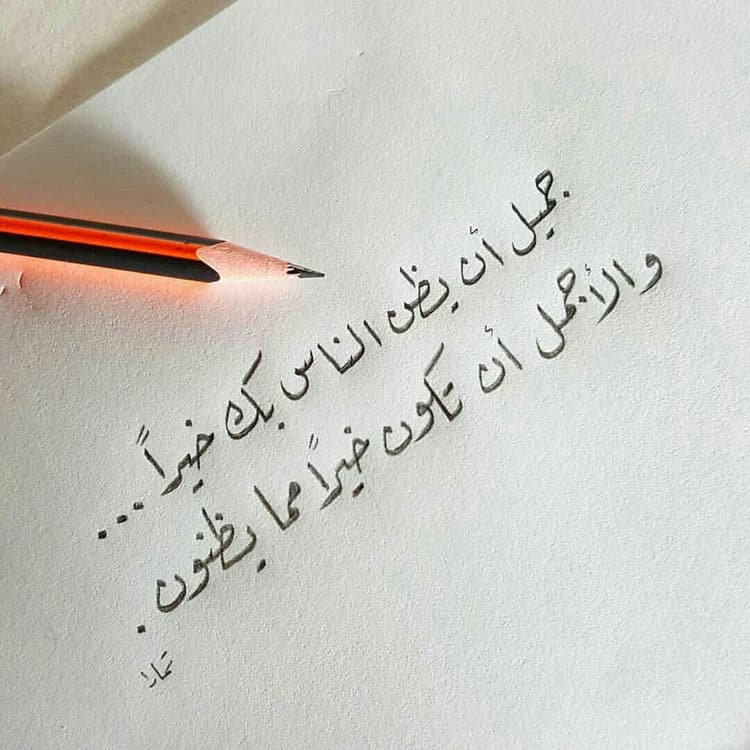 جميل أن يظن الناس بك خيراً ...
والأجمل أن تكون خيراً مما يظنون .
تمارا